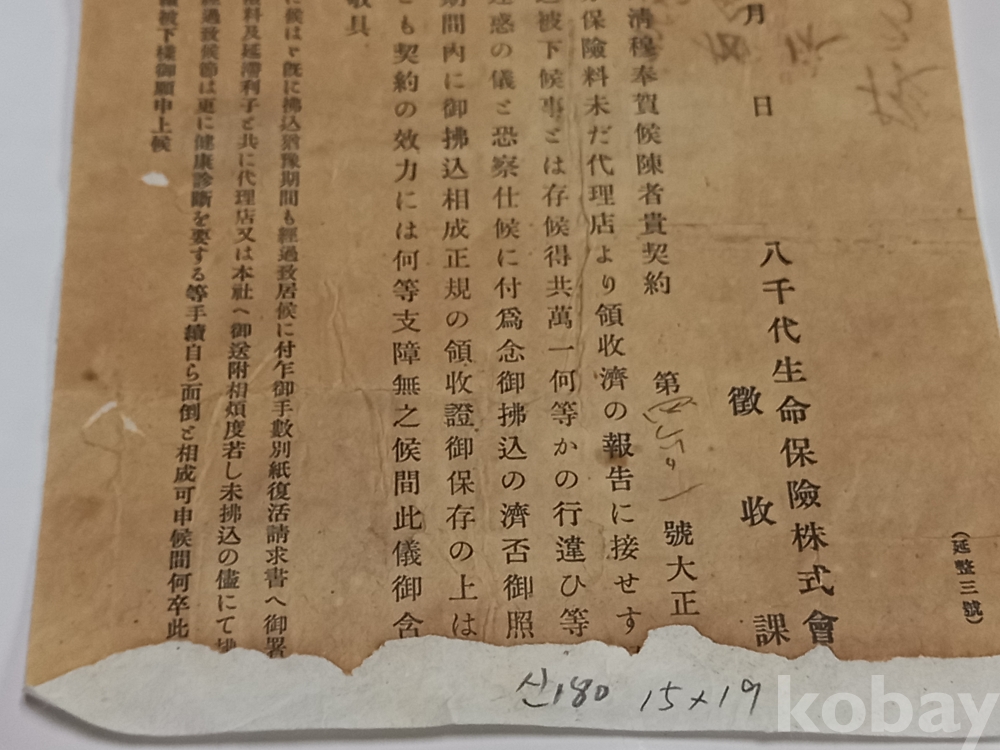 月 日
八千代生命保險株式會
徵收課
(延整三號)
第 號大正
淸穆奉賀候陳者貴契約
保險料未だ代理店より領收濟の報告に接せす
被下候事とは存候得共萬一何等かの行違ひ等
惑の儀と恐察仕候に付爲念御拂込の濟否御照
期間內に御拂込相成正規の領收證御保存の上は
も契約の效力には何等支障無之候間此儀御含
敬具
候はゞ旣に拂込猶豫期間も經過致居候に付乍御手數別紙復活請求書へ御署
料及延滯利子と共に代理店又は本社へ御送附相煩度若し未拂込の儘にて
經過致候節は更に健康診斷を要する等手續自ら面倒と相成可申候間何卒此
被下樣御願申上候
산180 15×19
kobay